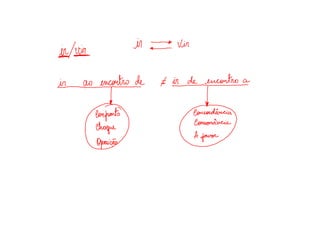 ir/vir
ir ⇄ vir
ir ao encontro de ≠ ir de encontro a
Conjunto
Choque
Oposição
Concordância
Consonância
A favor